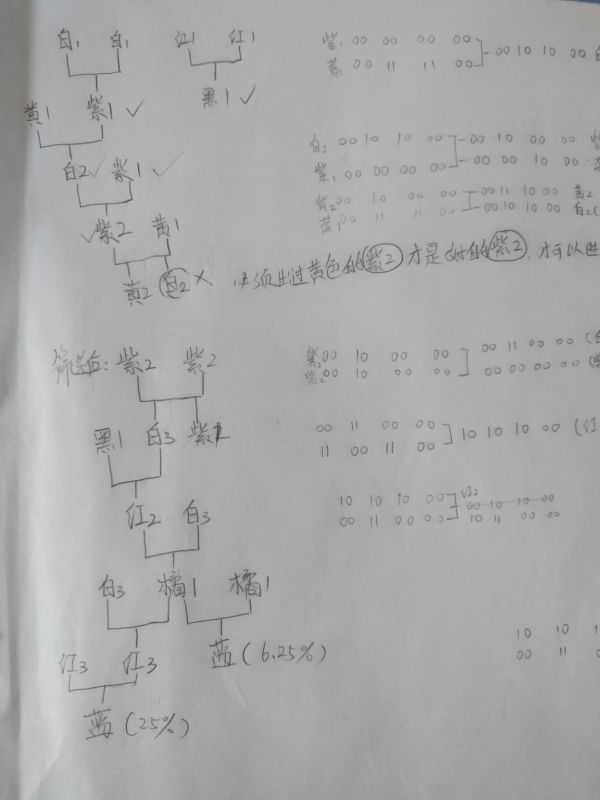 白1 白1 红1 红1
紫1 00 00 00 00
黄1 00 11 11 00
00 10 10 00
黄1 紫1 ✓ 黑1 ✓
白2 00 10 10 00
00 10 00 00
紫1 00 00 00 00
00 00 10 00
白2 ✓ 紫1 ✓
紫2 00 10 00 00
00 11 10 00 黄2
黄1 00 11 11 00
00 10 10 00 白2
✓紫2 黄1
黄2 白2 × 必须出过黄色的紫2才是好的紫2,才可以进
筛选后: 紫2 紫2
紫2 00 10 00 00
00 11 00 00
紫2 00 10 00 00
00 00 00 00
黑1 白3 紫1
00 11 00 00
11 00 11 00
10 10 10 00 (红
红2 白3
10 10 10 00
红2
00 10 10 00
00 11 00 00
10 11 00 00
白3 橘1 橘1
红3 红3 蓝(6.25%)
10 10 1
00 11 0
蓝(25%)